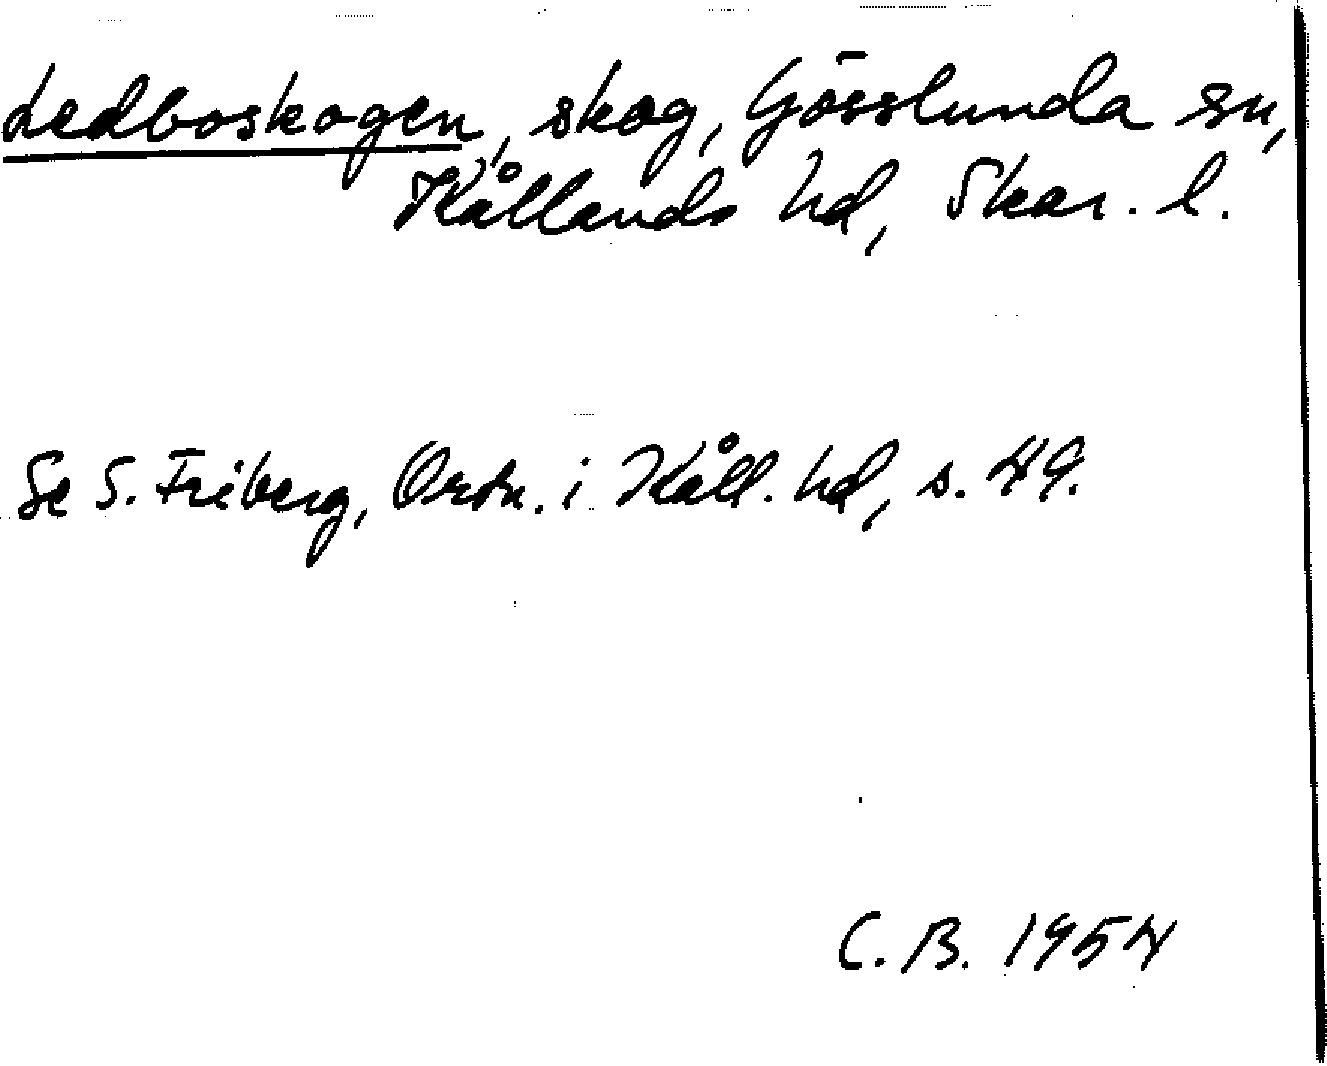 Ledboskogen, skog, Gösslunda sn,
Kållands hd, Skar. l.
Se S. Friberg, Ortn. i Kåll. hd, s. 49.
C. B. 1954